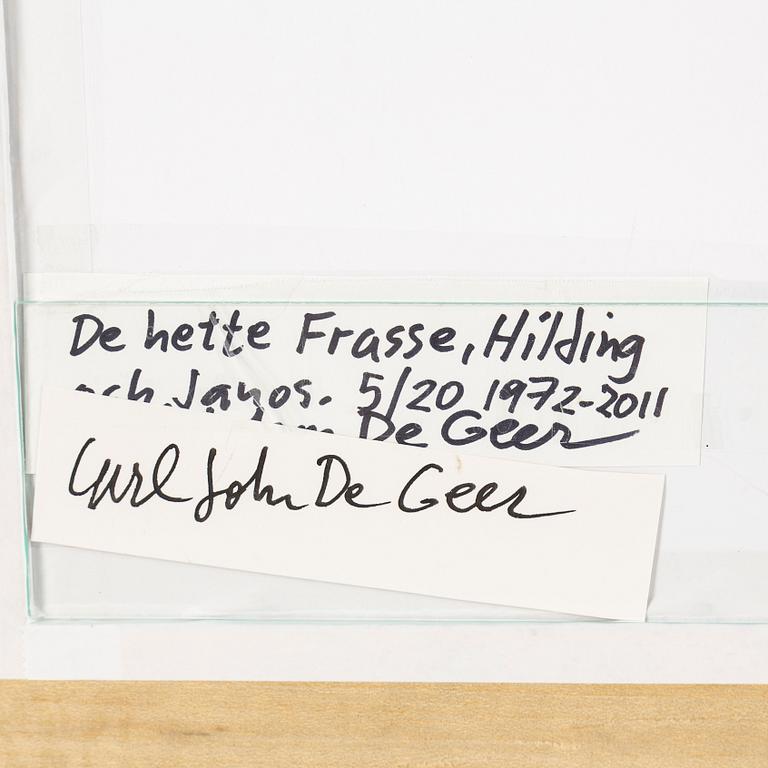 De hette Frasse, Hilding
och Janos. 5/20 1972-2011
De Geer
Carl Johan De Geer